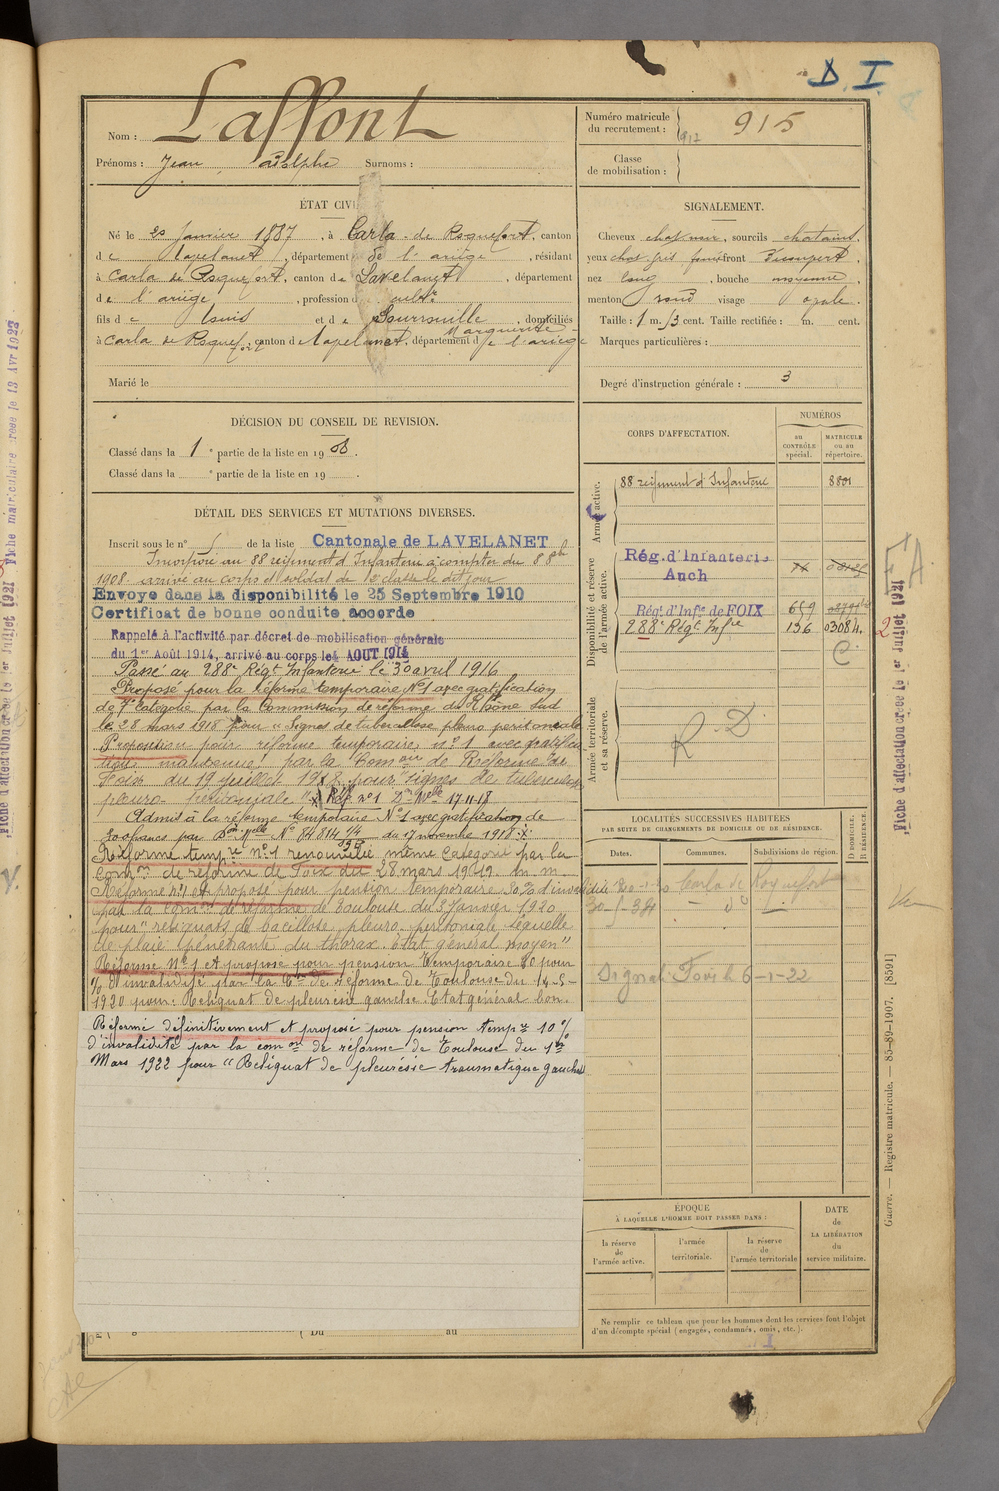 D. I.
Nom : Laffont
Prénoms : Jean Adolphe Surnoms :
Numéro matricule du recrutement : 915
917
Classe de mobilisation :
ÉTAT CIVIL
Né le 20 Janvier 1887, à Carla-de Roquefort, canton
de Lavelanet, département de l'ariège, résidant
à Carla de Roquefort, canton de Lavelanet, département
de l'ariège, profession d cultr
fils de Louis et de Sourrouille Marguerite, domiciliés
à Carla de Roquefort, canton de Lavelanet, département de l'ariège
Marié le
SIGNALEMENT.
Cheveux chat noir, sourcils chatains,
yeux chat gris foncé front découvert,
nez long, bouche moyenne,
menton rond visage ovale.
Taille : 1 m. 73 cent. Taille rectifiée : m. cent.
Marques particulières :
Degré d'instruction générale : 3
DÉCISION DU CONSEIL DE REVISION.
Classé dans la 1e partie de la liste en 1908.
Classé dans la e partie de la liste en 19 .
DÉTAIL DES SERVICES ET MUTATIONS DIVERSES.
Inscrit sous le n° 5 de la liste Cantonale de LAVELANET
Incorporé au 88 régiment d'Infanterie à compter du 8 8bre
1908 arrivé au corps et soldat de 2e classe le dit jour
Envoyé dans la disponibilité le 25 Septembre 1910
Certificat de bonne conduite accordé
Rappelé à l'activité par décret de mobilisation générale
du 1er Août 1914, arrivé au corps le 4 AOUT 1914
Passé au 288e Régt Infanterie le 30 avril 1916
Proposé pour la réforme temporaire N°1 avec gratification
de 7e catégorie par la Commission de réforme du Rhône Sud
le 28 mars 1918 pour "Signes de tuberculose pleuro péritonéale
Proposition pour réforme temporaire n° 1 avec gratifica-
tion maintenue par la Comon de Réforme de
Foix du 19 juillet 1918 pour "signes de tuberculose
pleuro péritonéale" x Réf n°1 Don Mlle 17-11-18
Admis à la réforme temporaire N°1 avec gratification de
par Don Mlle N° 84814 1/4 du 17 novembre 1918 x
Réforme tempre n°1 renouvelée même catégorie par la
Comon de réforme de Foix du 28 mars 1919.
Réformé n°1 et proposé pour pention temporaire 30% d'invalidité
par la comon de réforme de Toulouse du 3 Janvier 1920
pour "résiquats de bacillose pleuro-péritonéale séquelle
de plaie pénétrante du thorax. État général moyen"
Réformé N°1 et proposé pour pension temporaire 20 pour
% d'invalidité par la Con de réforme de Toulouse du 14-5-
1920 pour : Reliquat de pleurésie gauche. Etat général bon.
Réformé définitivement et proposé pour pension tempre 10%
d'invalidité par la comon de réforme de Toulouse du 1er
Mars 1922 pour "Reliquat de pleurésie traumatique gauche
Du au
CORPS D'AFFECTATION.
NUMÉROS
au CONTRÔLE spécial.
MATRICULE ou au répertoire.
Armée active.
88 régiment d'Infanterie 8801
Disponibilité et réserve de l'armée active.
Rég. d'Infanterie
Auch
Régt d'Infie de FOIX 659
288e Régt Infie 136 03084
C
Armée territoriale et sa réserve.
R D
LOCALITÉS SUCCESSIVES HABITÉES
PAR SUITE DE CHANGEMENTS DE DOMICILE OU DE RÉSIDENCE.
Dates. Communes. Subdivisions de région.
D. DOMICILE. R. RÉSIDENCE.
Carla de Roquefort
30-5-34 — do —
Foix le 6-1-22
ÉPOQUE
À LAQUELLE L'HOMME DOIT PASSER DANS :
la réserve de l'armée active.
l'armée territoriale.
la réserve de l'armée territoriale
DATE de LA LIBÉRATION du service militaire.
Ne remplir ce tableau que pour les hommes dont les services font l'objet
d'un décompte spécial (engagés, condamnés, omis, etc.).
I
Guerre. — Registre matricule. — 85-89-1907. [8591]
F A
2 Fiche d'affectation créée le 1er Juillet 1921
Fiche d'affectation créée le 1er Juillet 1921 Fiche matriculaire créée le 13 Avr 1923
V.